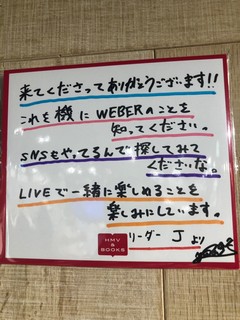 来てくださってありがとうございます!!
これを機にWEBERのことを
知ってください。
SNSもやってるんで探してみて
くださいな。
LIVEで一緒に楽しめることを
楽しみにしています。
HMV
&
BOOKS
リーダー Jより